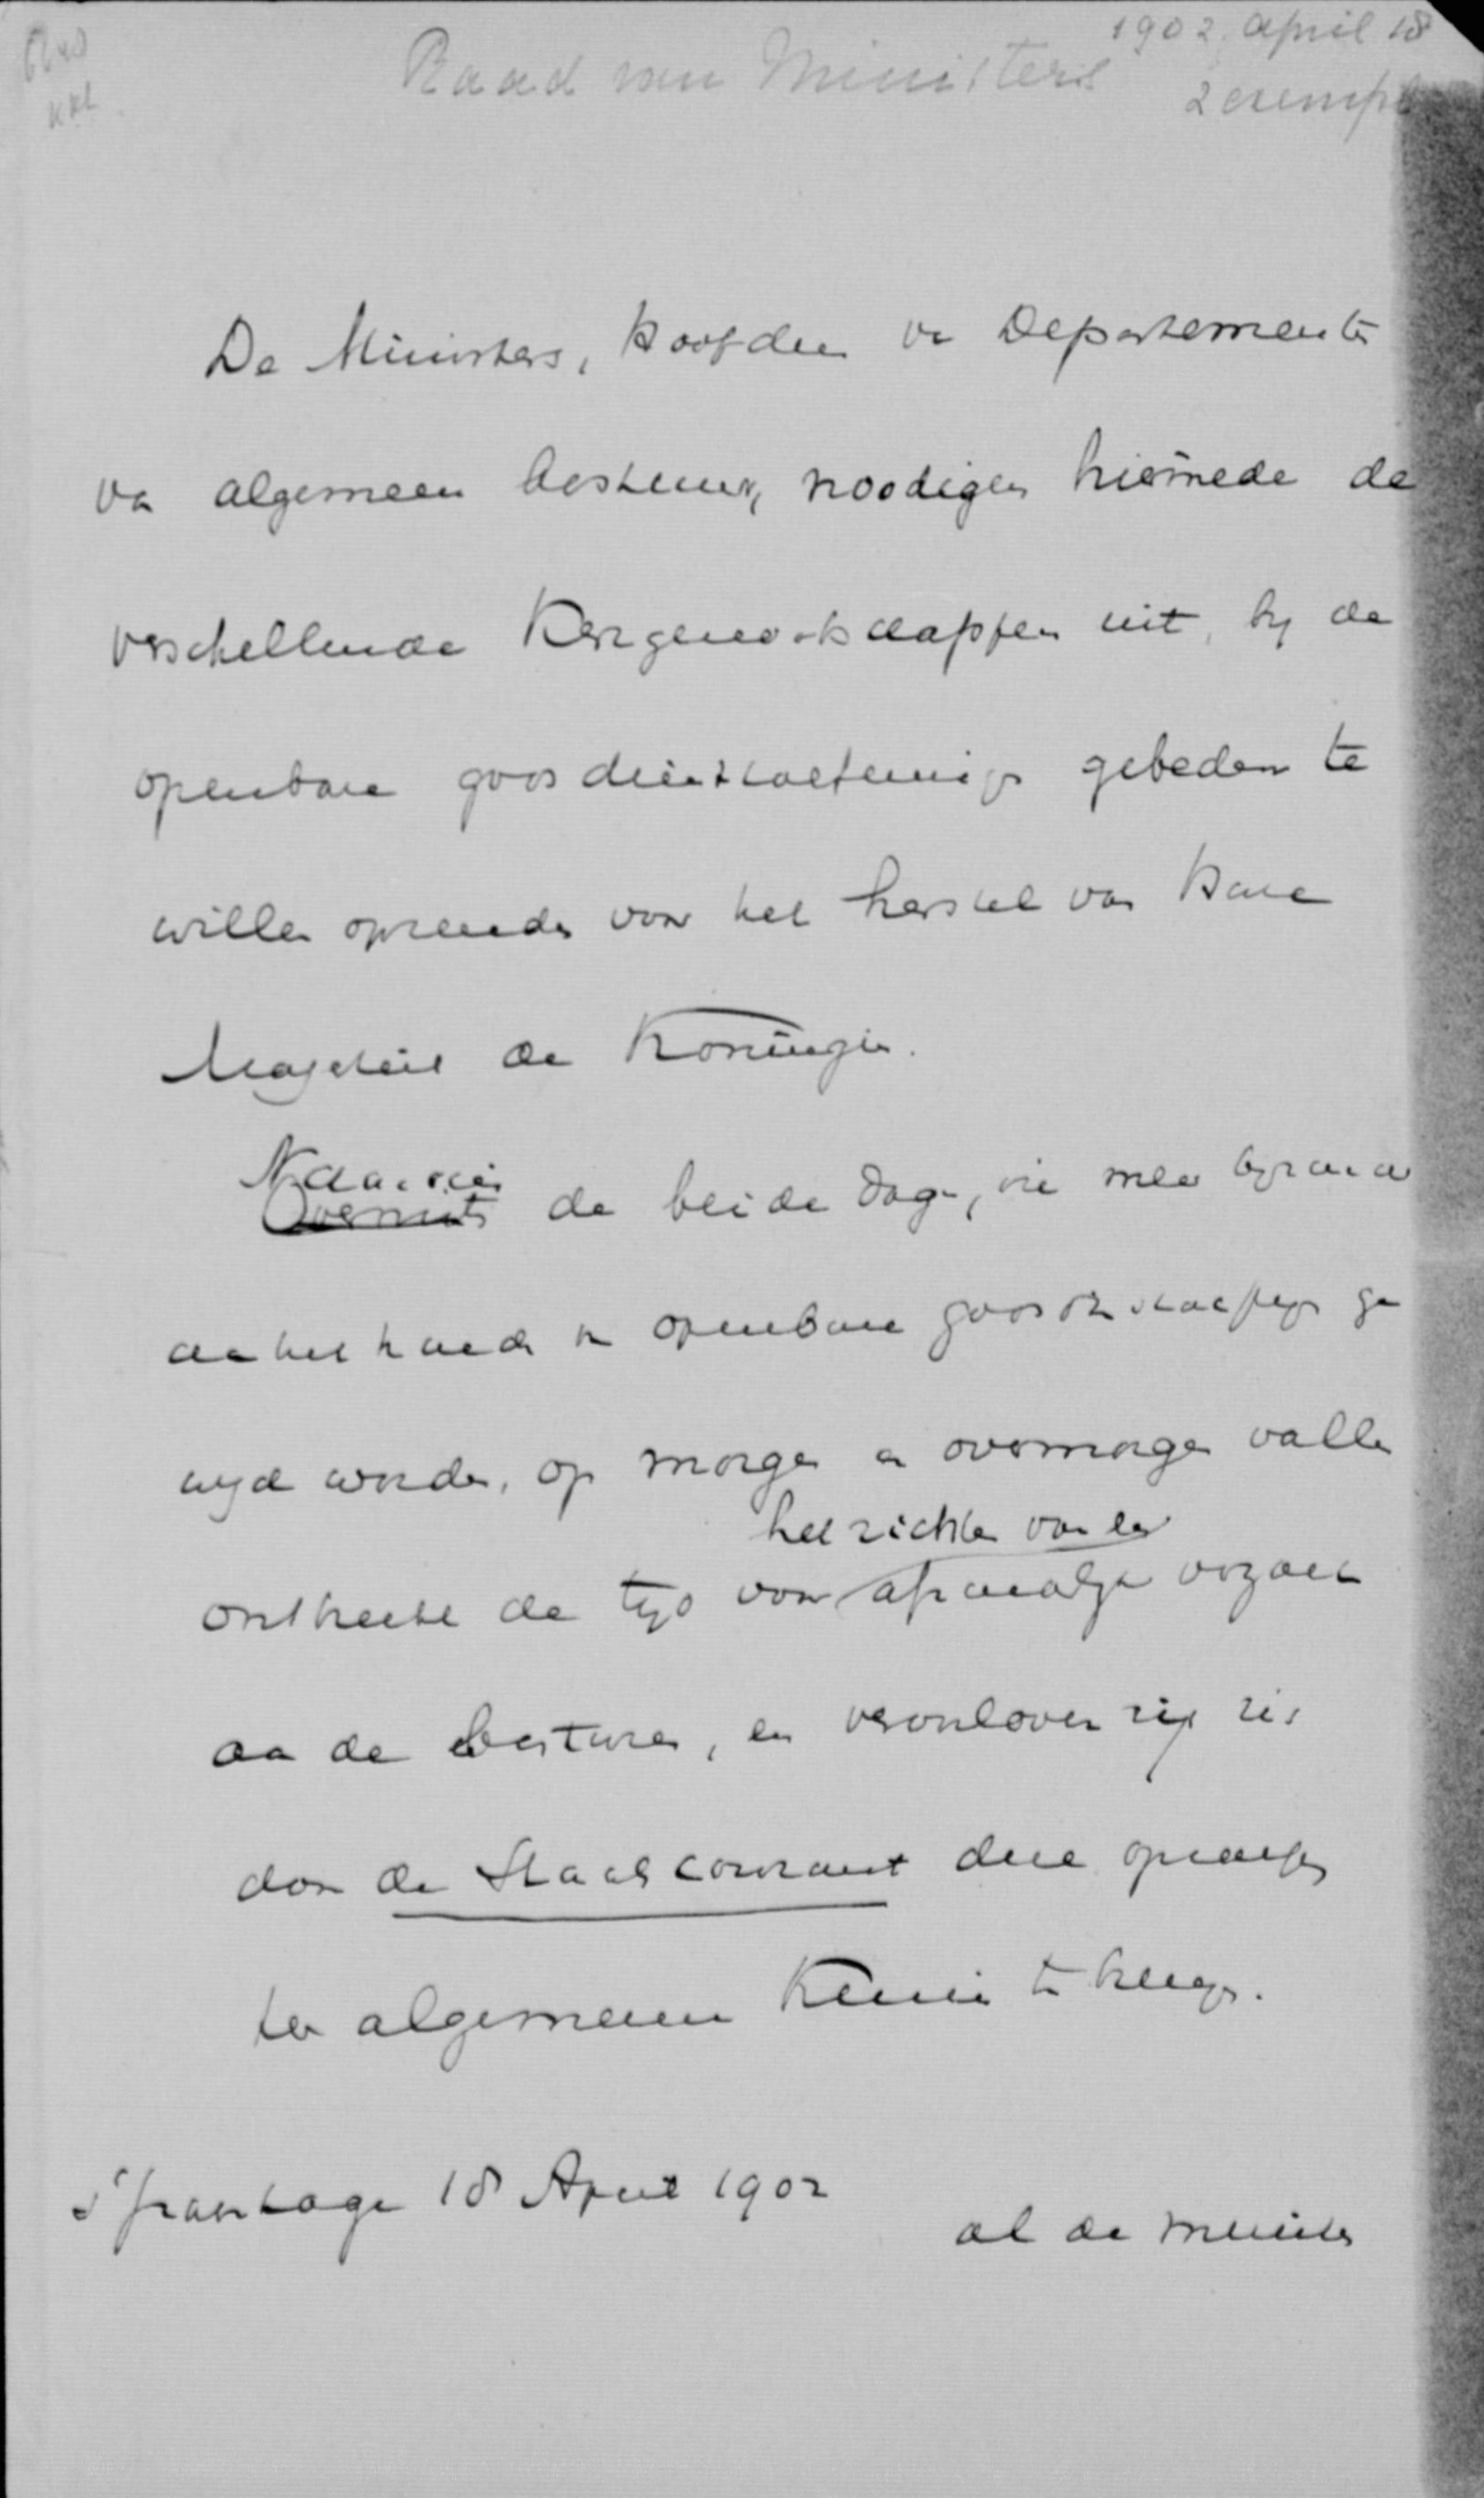 1902. April 18
Raad van Ministers
2 exempl
De Ministers, Hoofden van Departementen
van algemeen bestuur, noodigen hiermede de
verschillende Kerkgenootschappen uit, bij de
openbare godsdienstoefeningen gebeden te
willen opzenden voor het herstel van Hare
Majesteit de Koningin.
Naardien
Overmits de beide dagen, die meer bijzonder
aan het houden van openbare godsdienstoefeningen ge
wijd worden, op morgen en overmorgen vallen
het richten van een
ontbreekt de tijd voor afzonderlijk verzoek
aan de besturen, en veroorloven zij zich
door de Staatscourant deze
ter algemeene kennis te brengen.
's Gravenhage 18 April 1902
al de ministers